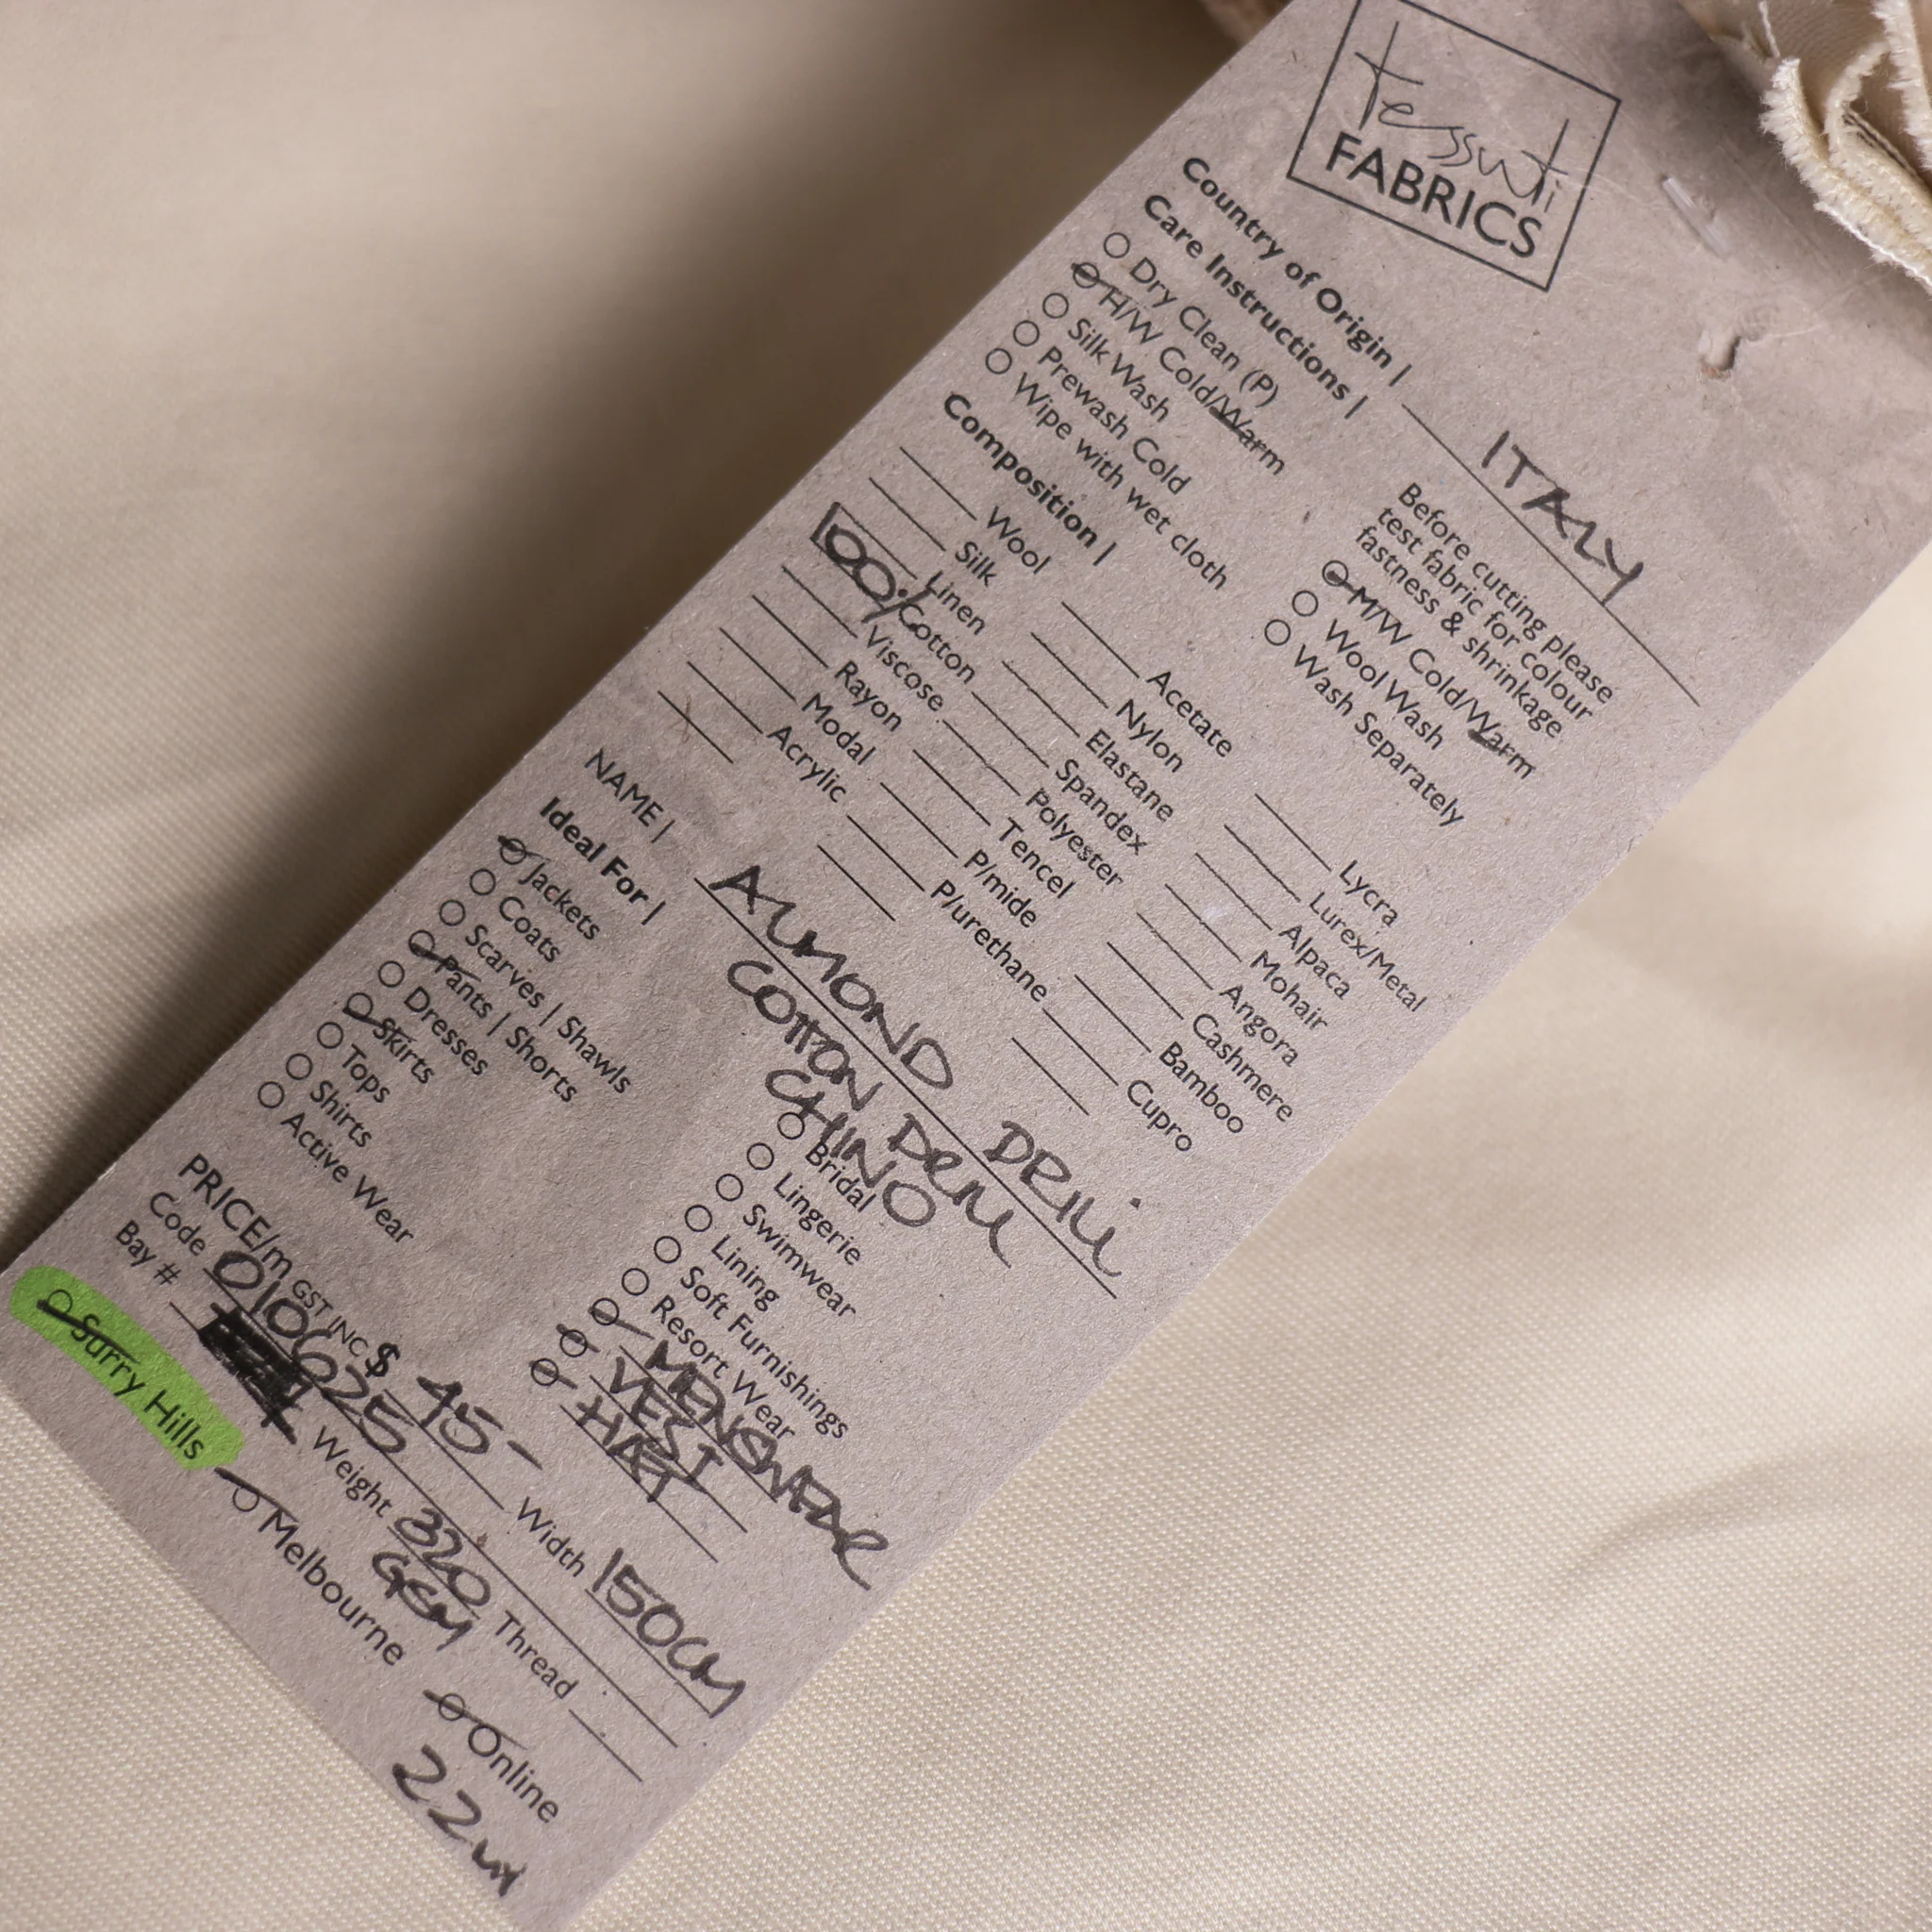 tessuti
FABRICS
Country of Origin | ITALY
Care Instructions |
Before cutting please
test fabric for colour
fastness & shrinkage
Dry Clean (P)
H/W Cold/Warm
Silk Wash
Prewash Cold
Wipe with wet cloth
M/W Cold/Warm
Wool Wash
Wash Separately
Composition |
Wool
Silk
Linen
100% Cotton
Viscose
Rayon
Modal
Acrylic
Acetate
Nylon
Elastane
Spandex
Polyester
Tencel
P/mide
P/urethane
Lycra
Lurex/Metal
Alpaca
Mohair
Angora
Cashmere
Bamboo
Cupro
NAME | ALMOND DRILL
COTTON DRILL
CHINO
Ideal For |
Jackets
Coats
Scarves | Shawls
Pants | Shorts
Dresses
Skirts
Tops
Shirts
Active Wear
Bridal
Lingerie
Swimwear
Lining
Soft Furnishings
Resort Wear
MENSWEAR
VEST
HAT
PRICE/m GST INC $ 45-
Width 150CM
Code 010625
Weight 320 GSM
Thread
Bay #
Surry Hills
Melbourne
Online